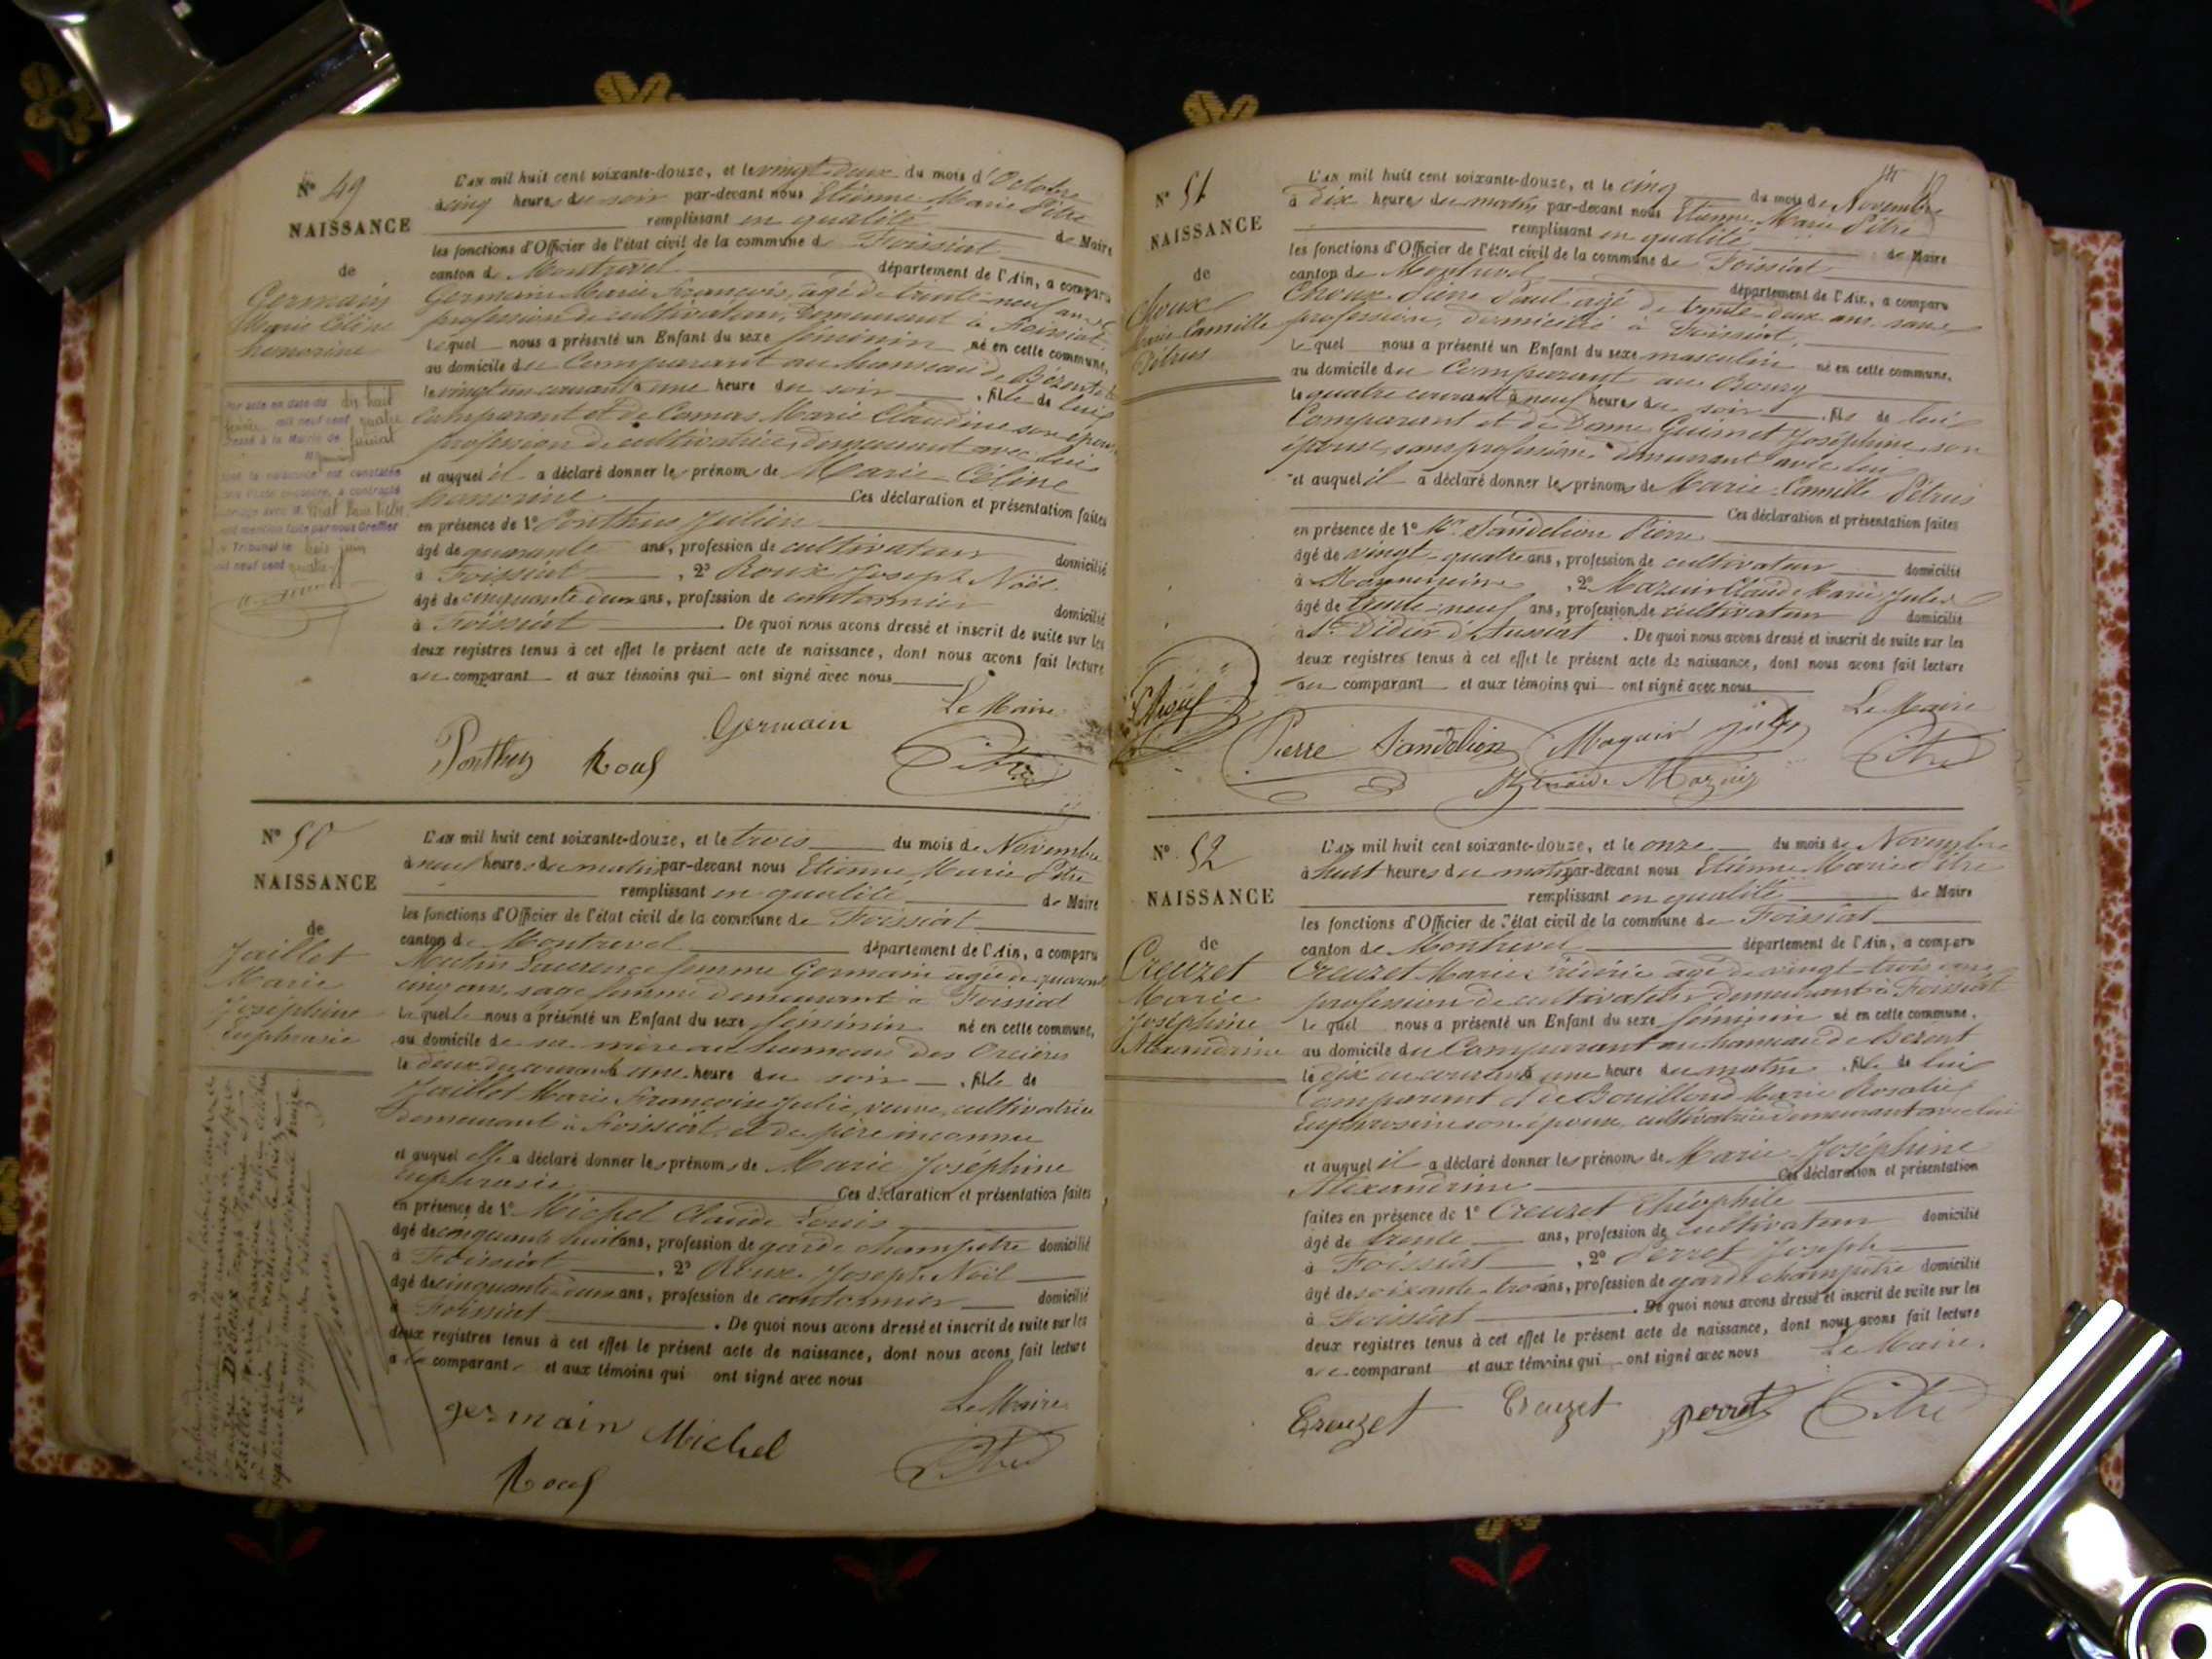 N° 49
NAISSANCE
de
Germain
Marie Céline
honorine
Par acte en date du dix huit
février mil neuf cent quatre
dressé à la Mairie de
dont la naissance est constatée
dans l'acte ci-contre, a contracté
mariage avec M.
dont mention faite par nous Greffier
du Tribunal le trois juin
mil neuf cent quatre
L'an mil huit cent soixante-douze, et le vingt-deux du mois d'Octobre
à cinq heures du soir par-devant nous Etienne Marie Pitre
remplissant en qualité de Maire
les fonctions d'Officier de l'état civil de la commune de Foissiat
canton de Montrevel département de l'Ain, a comparu
Germain Marie François, âgé de trente-neuf ans
profession de cultivateur, demeurant à Foissiat,
Lequel nous a présenté un Enfant du sexe féminin né en cette commune,
au domicile du Comparant au hameau de
le vingt un courant à une heure du soir, fille de lui
Comparant et de Camus Marie Claudine son épouse
profession de cultivatrice, demeurant avec lui
et auquel il a déclaré donner les prénoms de Marie Céline
honorine Ces déclaration et présentation faites
en présence de 1° Ponthus Julien
âgé de quarante ans, profession de cultivateur domicilié
à Foissiat, 2° Roux Joseph Noël
âgé de cinquante deux ans, profession de cantonnier domicilié
à Foissiat. De quoi nous avons dressé et inscrit de suite sur les
deux registres tenus à cet effet le présent acte de naissance, dont nous avons fait lecture
au comparant et aux témoins qui ont signé avec nous
Le Maire
Germain
Ponthus Roux Pitre
N° 50
NAISSANCE
de
Jaillet
Marie
Joséphine
Euphrasie
L'an mil huit cent soixante-douze, et le trois du mois de Novembre
à neuf heures du matin par-devant nous Etienne Marie Pitre
remplissant en qualité de Maire
les fonctions d'Officier de l'état civil de la commune de Foissiat
canton de Montrevel département de l'Ain, a comparu
Laurence femme Germain âgée de quarante
cinq ans, sage femme demeurant à Foissiat
Laquelle nous a présenté un Enfant du sexe féminin né en cette commune,
au domicile de sa mère au hameau des Orcières
le deux du courant à une heure du soir, fille de
Jaillet Marie Françoise Julie, veuve, cultivatrice
demeurant à Foissiat, et de père inconnu
et auquel elle a déclaré donner les prénoms de Marie Joséphine
Euphrasie Ces déclaration et présentation faites
en présence de 1° Michel Claude Louis
âgé de cinquante huit ans, profession de garde champêtre domicilié
à Foissiat, 2° Roux Joseph Noël
âgé de cinquante deux ans, profession de cantonnier domicilié
à Foissiat. De quoi nous avons dressé et inscrit de suite sur les
deux registres tenus à cet effet le présent acte de naissance, dont nous avons fait lecture
à la comparante et aux témoins qui ont signé avec nous
Le Maire
germain Michel
Roux Pitre
N° 51
NAISSANCE
de
Choux
Marie Camille
Pétrus
L'an mil huit cent soixante-douze, et le cinq du mois de Novembre
à dix heures du matin par-devant nous Etienne Marie Pitre
remplissant en qualité de Maire
les fonctions d'Officier de l'état civil de la commune de Foissiat
canton de Montrevel département de l'Ain, a comparu
Choux Pierre Paul âgé de trente-deux ans, sans
profession, domicilié à Foissiat,
Lequel nous a présenté un Enfant du sexe masculin né en cette commune,
au domicile du Comparant au Bourg
le quatre courant à neuf heures du soir, fils de lui
Comparant et de Dame Guimet Joséphine son
épouse, sans profession, demeurant avec lui
et auquel il a déclaré donner les prénoms de Marie Camille Pétrus
Ces déclaration et présentation faites
en présence de 1° Mr Sandelion Pierre
âgé de vingt quatre ans, profession de cultivateur domicilié
à, 2° Mazuir Claude Marie Jules
âgé de trente-neuf ans, profession de cultivateur domicilié
à St Didier d'Aussiat. De quoi nous avons dressé et inscrit de suite sur les
deux registres tenus à cet effet le présent acte de naissance, dont nous avons fait lecture
au comparant et aux témoins qui ont signé avec nous
Le Maire
Pierre Sandelion Mazuir jules Pitre
Mazuir
N° 52
NAISSANCE
de
Creuzet
Marie
Joséphine
Alexandrine
L'an mil huit cent soixante-douze, et le onze du mois de Novembre
à huit heures du matin par-devant nous Etienne Marie Pitre
remplissant en qualité de Maire
les fonctions d'Officier de l'état civil de la commune de Foissiat
canton de Montrevel département de l'Ain, a comparu
Creuzet Marie Frédéric âgé de vingt-trois ans
profession de cultivateur demeurant à Foissiat
Lequel nous a présenté un Enfant du sexe féminin né en cette commune,
au domicile du Comparant au hameau de
le dix du courant à une heure du matin, fille de lui
Comparant et de Bouilloud Marie Rosalie
Euphrosine son épouse, cultivatrice demeurant avec lui
et auquel il a déclaré donner les prénoms de Marie Joséphine
Alexandrine Ces déclaration et présentation
faites en présence de 1° Creuzet Théophile
âgé de trente ans, profession de cultivateur domicilié
à Foissiat, 2° Perret Joseph
âgé de soixante-trois ans, profession de garde champêtre domicilié
à Foissiat. De quoi nous avons dressé et inscrit de suite sur les
deux registres tenus à cet effet le présent acte de naissance, dont nous avons fait lecture
au comparant et aux témoins qui ont signé avec nous
Le Maire.
Creuzet Creuzet perret Pitre